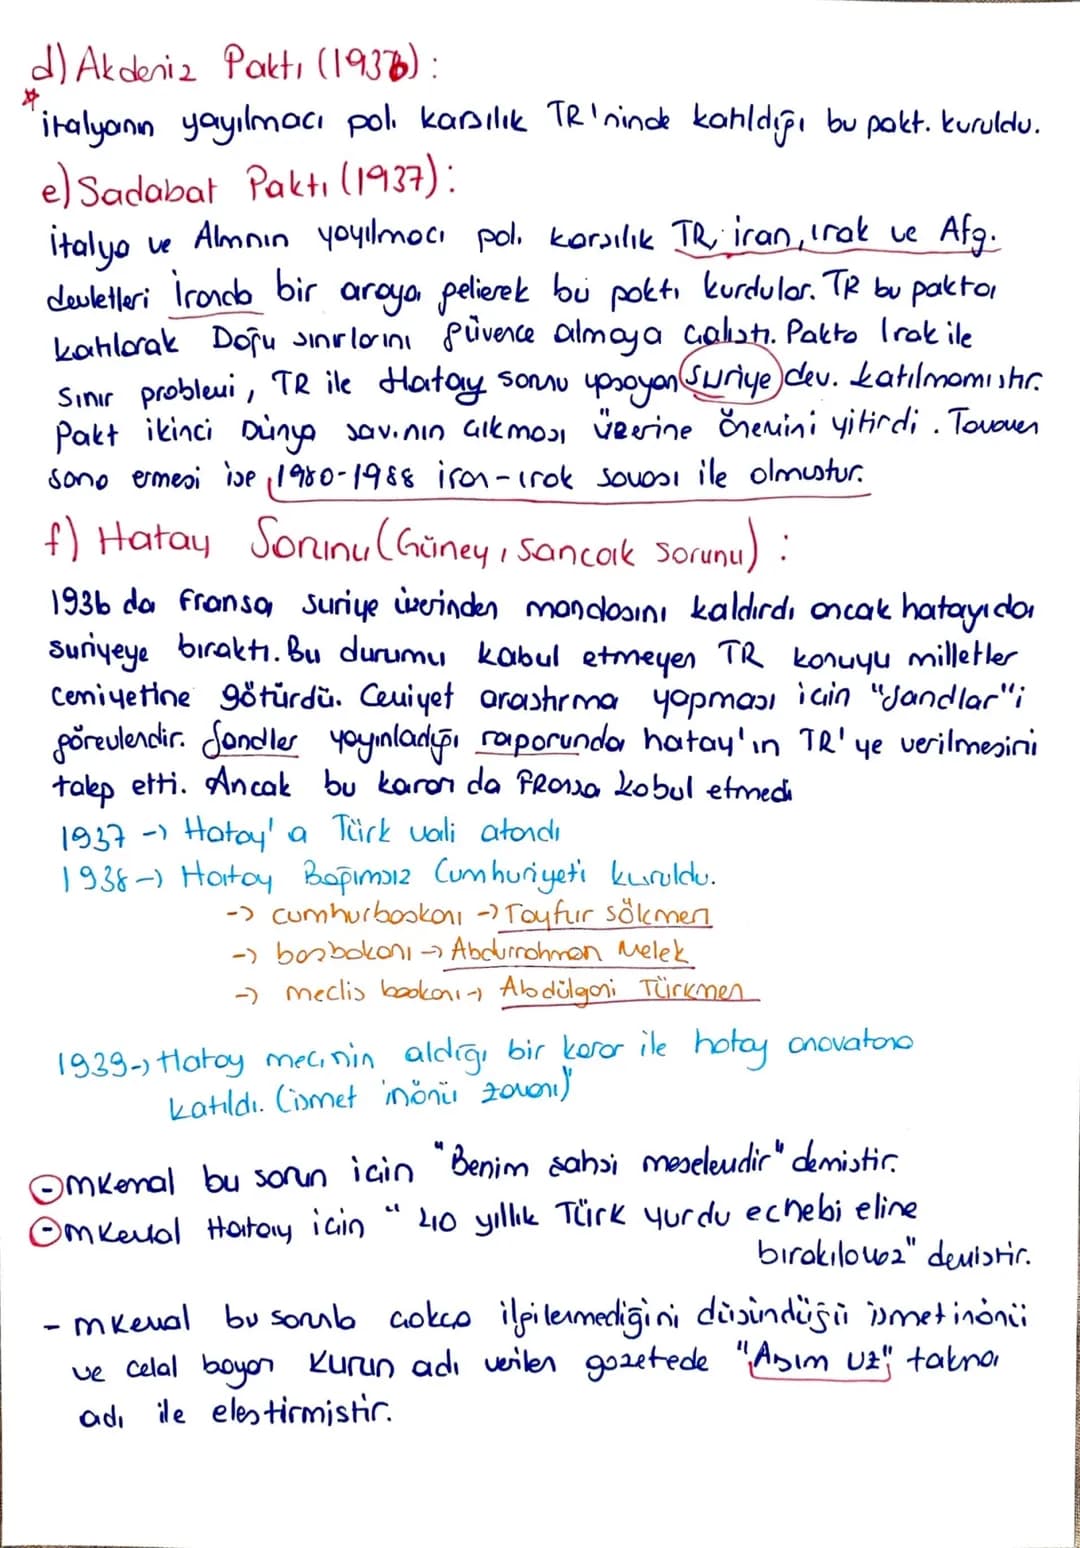 d) Akdeniz Paktı (1936) :
* italyanın yayılmacı poli karsılık TR'ninde katıldığı bu pakt. kuruldu.
e) Sadabat Paktı (1937) :
italya ve Almnın yayılmacı pol. karsılık TR, iran, ırak ve Afg.
devletleri İranda bir araya gelierek bu paktı kurdular. TR bu pakta
katılarak Doğu sınırlarını güvence almaya calıstı. Pakta Irak ile
Sınır problemi, TR ile Hatay sornu yasayan Suriye dev. katılmamıstır.
Pakt ikinci Dünya sav.nın cıkması üzerine önemini yitirdi. Tavamen
sona ermesi ise 1980-1988 iran-ırak savası ile olmustur.
f) Hatay Sorunu (Güney, Sancak Sorunu) :
1936 da Fransa suriye üzerinden mandasını kaldırdı ancak hatayıda
suriyeye bıraktı. Bu durumu kabul etmeyen TR konuyu milletler
cemiyetine götürdü. Cemiyet arastırma yapması icin "Sandlar"i
görevlendir. Sandler yayınladığı raporunda hatay'ın TR'ye verilmesini
talep etti. Ancak bu kararı da Fransa kabul etmedi
1937 -> Hatay'a Türk vali atandı
1938 -> Hatay Bağımsız Cumhuriyeti kuruldu.
-> cumhurbaskanı -> Tayfur sökmen
-> basbakanı -> Abdurrahman Melek
-> meclis baskanı -> Abdülgani Türkmen
1939 -> Hatay mec.nin aldığı bir karar ile hatay anavatana
katıldı. (ismet inönü zamanı)
- mKemal bu sorun icin "Benim sahsi meselemdir" demistir.
- mKemal Hatay icin "40 yıllık Türk yurdu ecnebi eline
bırakılamaz" demistir.
- mKemal bu sorunla cokca ilgilenmediğini düsündüğü ismet inönü
ve celal bayarı Kurun adı verilen gazetede "Asım Uz" takma
adı ile elestirmistir.